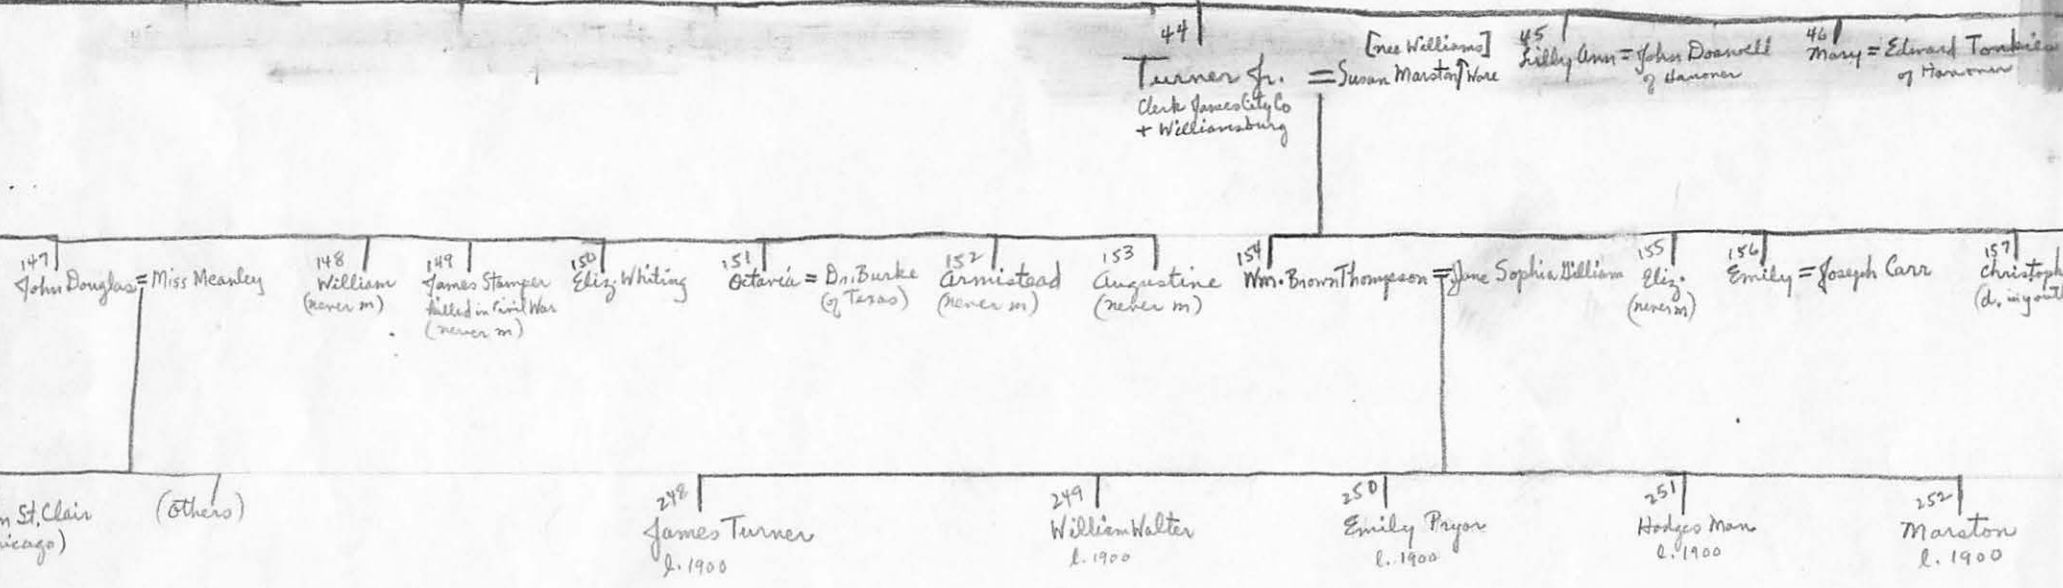 44
Turner Jr. = Susan Marston ↑ Ware
[nee Williams]
Clerk James City Co
+ Williamsburg
45
Lilly Ann = John Doswell
of Hanover
46
Mary = Edward Tompkies
of Hanover
147
John Douglas = Miss Meanley
148
William
(never m)
149
James Stamper
killed in Civil War
(never m)
150
Eliz Whiting
151
Octavia = Dr. Burke
(of Texas)
152
Armistead
(never m)
153
Augustine
(never m)
154
Wm. Brown Thompson = Jane Sophia Gilliam
155
Eliz.
(never m)
156
Emily = Joseph Carr
157
Christoph
(d. in yout
n St. Clair
icago)
(others)
248
James Turner
l. 1900
249
William Walter
l. 1900
250
Emily Pryor
l. 1900
251
Hodges Man
l. 1900
252
Marston
l. 1900